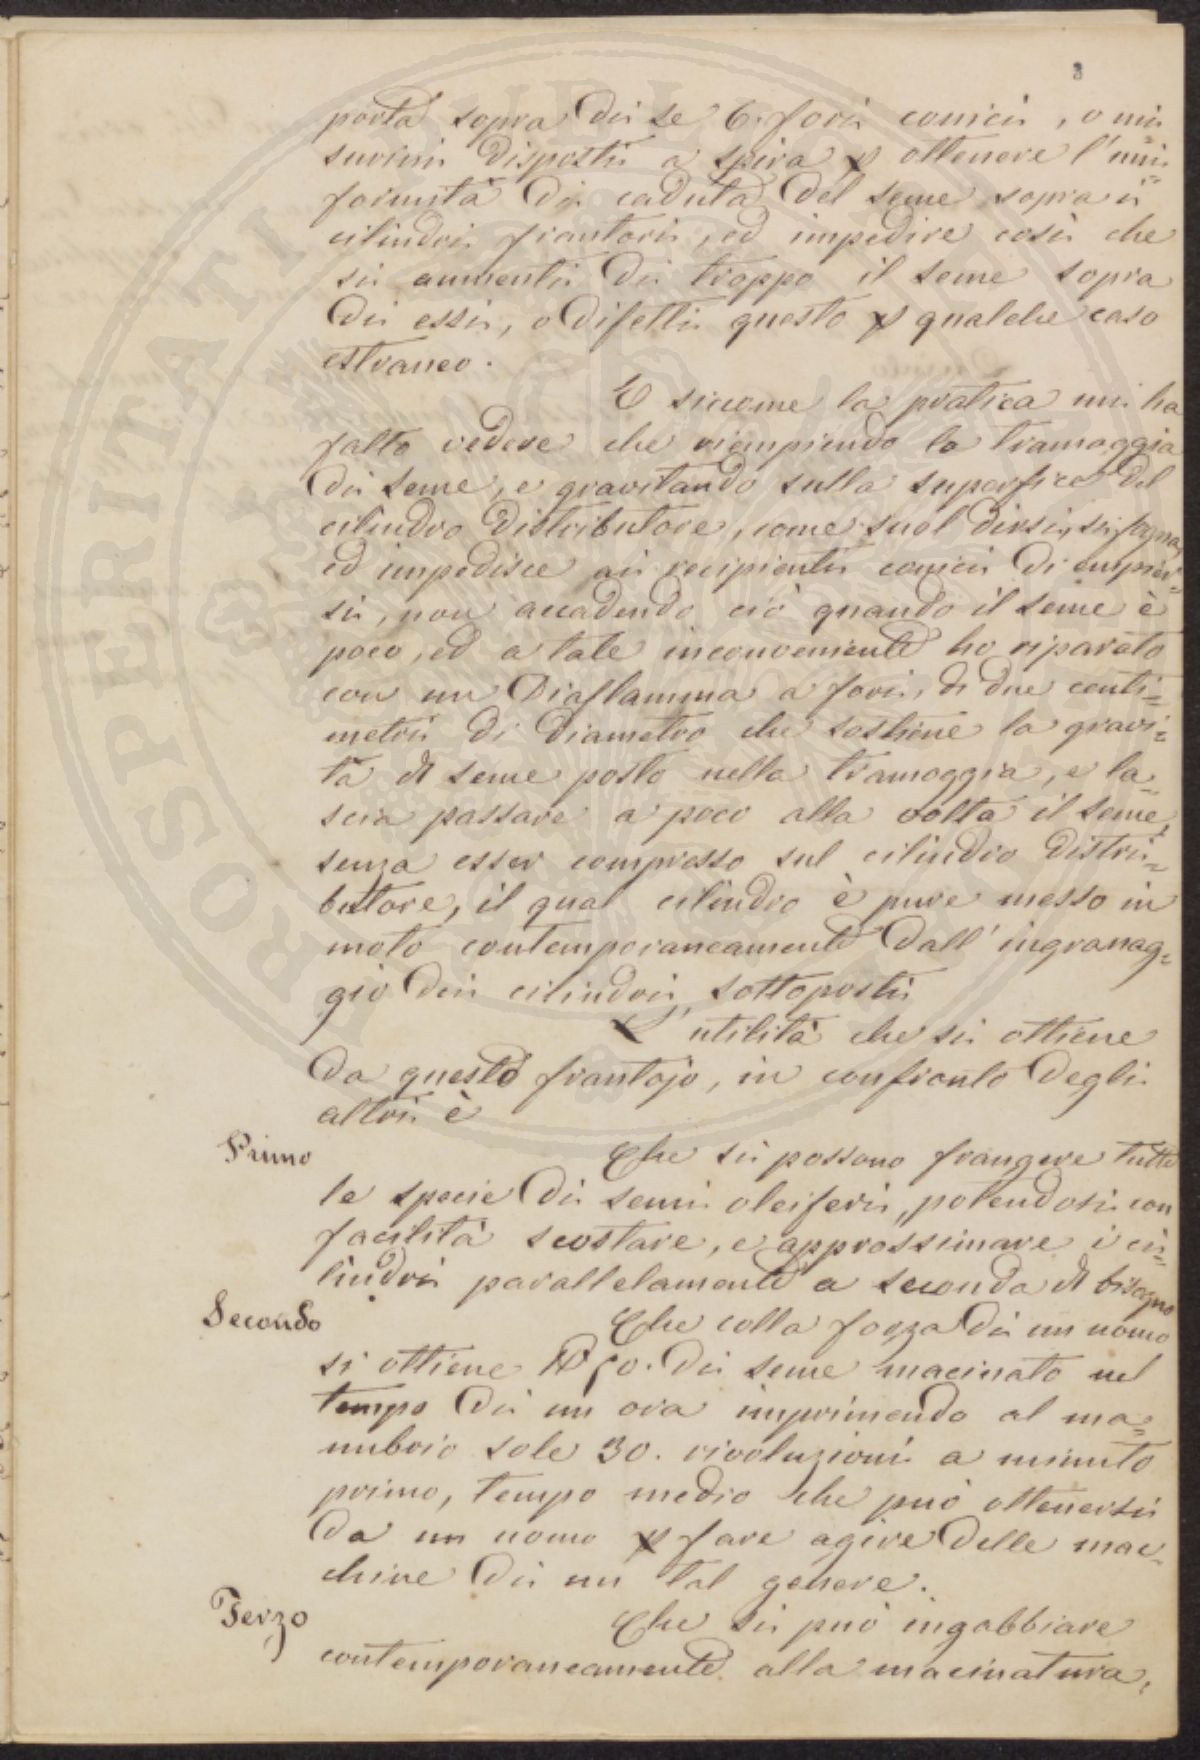 3
porta sopra di se 6. fori conici, o mi
surini disposti a spira p ottenere l'uni=
formità di caduta del seme sopra i
cilindri frantori, ed impedire così che
si aumenti di troppo il seme sopra
di essi, o difetti questo p qualche caso
estraneo.
E siccome la pratica mi ha
fatto vedere che riempiendo la tramoggia
di seme, e gravitando sulla superficie del
cilindro distributore, come suol dirsi, si fogna,
ed impedisce ai recipienti conici di empier=
si, non accadendo ciò quando il seme è
poco, ed a tale inconveniente ho riparato
con un Diaflamma a fori, di due centi=
metri di diametro che sostiene la gravi=
tà di seme posto nella tramoggia, e la=
scia passare a poco alla volta il seme,
senza esser compresso sul cilindro distri=
butore, il qual cilindro è pure messo in
moto contemporaneamente dall'ingranag=
gio dei cilindri sottoposti
L'utilità che si ottiene
da questo frantojo, in confronto degli
altri è
Primo Che si possono frangere tutte
le specie di semi oleiferi, potendosi con
facilità scostare, e approssimare i ci=
lindri parallelamente a seconda di bisogno
Secondo Che colla forza di un uomo
si ottiene 50. di seme macinato nel
tempo di un ora imprimendo al ma=
nubrio sole 30. rivoluzioni a minuto
primo, tempo medio che può ottenersi
da un uomo p fare agire delle mac=
chine di un tal genere.
Terzo Che si può ingabbiare
contemporaneamente alla macinatura,
PROSPERITATI